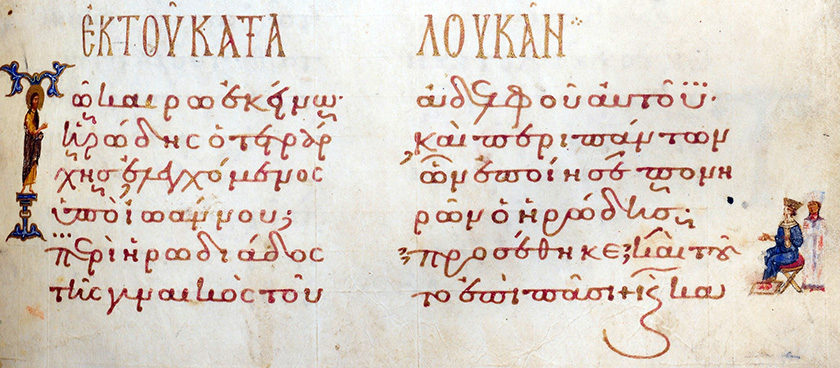 ἐκ τοῦ κατὰ Λουκᾶν
Τῶ καιρῶ ἐκείνω·
ἡρώδης ὁ τετράρ
χης ἐλεγχόμενος
ὑπὸ ἰωάννου;
περὶ ἡρωδιάδος
τῆς γυναικὸς τοῦ
ἀδελφοῦ αὐτοῦ·
καὶ περὶ πάντων
ὧν ἐποίησε πονη
ρῶν ὁ ἡρώδης·
προσέθηκε καὶ τοῦ
το ἐπὶ πᾶσι+ ϗ κα